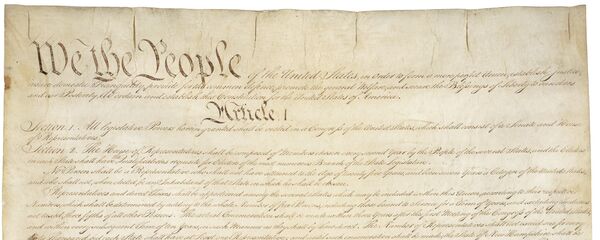 We the People of the United States, in Order to form a more perfect Union, establish Justice,
insure domestic Tranquility, provide for the common defence, promote the general Welfare, and secure the Blessings of Liberty to ourselves
and our Posterity, do ordain and establish this Constitution for the United States of America.
Article. I.
Section. 1. All legislative Powers herein granted shall be vested in a Congress of the United States, which shall consist of a Senate and House
of Representatives.
Section. 2. The House of Representatives shall be composed of Members chosen every second Year by the People of the several States, and the Electors
in each State shall have the Qualifications requisite for Electors of the most numerous Branch of the State Legislature.
No Person shall be a Representative who shall not have attained to the Age of twenty five Years, and been seven Years a Citizen of the United States,
and who shall not, when elected, be an Inhabitant of that State in which he shall be chosen.
Representatives and direct Taxes shall be apportioned among the several States which may be included within this Union, according to their respective
Numbers, which shall be determined by adding to the whole Number of free Persons, including those bound to Service for a Term of Years, and excluding Indians
not taxed, three fifths of all other Persons. The actual Enumeration shall be made within three Years after the first Meeting of the Congress of the United States,
and within every subsequent Term of ten Years, in such Manner as they shall by Law direct. The Number of Representatives shall not exceed one for every